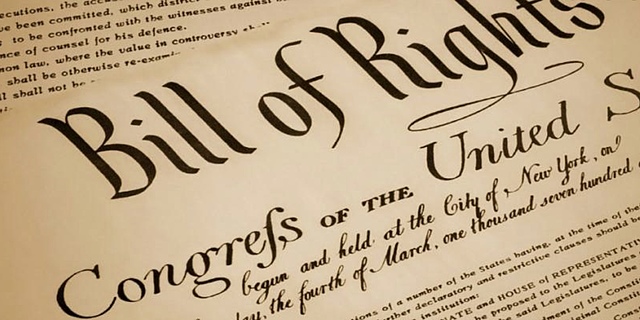 ecutions, the accu
ve been committed, which district
to be confronted with the witnesses against
nce of counsel for his defence.
mon law, where the value in controversy
shall be otherwise re-exami
ll shall not be
Bill of Rights
Congreſs OF THE United S
begun and held at the City of New York, on
day, the fourth of March, one thousand seven hundred
ions of a number of the States having, at the time of the
rther declaratory and restrictive clauses should be
institution:
ATE and HOUSE of REPRESENTATI
be proposed to the Legislatures
said Legislatures, to be
dment of the Constitu
iginal Constitu